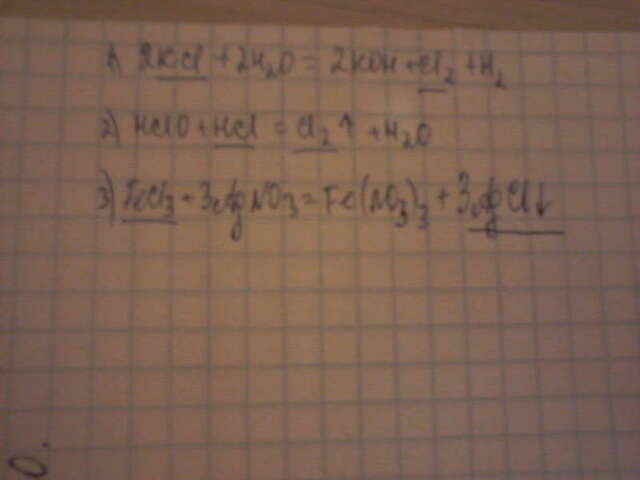 1) 2KCl + 2H₂O = 2KOH + Cl₂ + H₂
2) HClO + HCl = Cl₂ ↑ + H₂O
3) FeCl₃ + 3AgNO₃ = Fe(NO₃)₃ + 3AgCl↓
О.